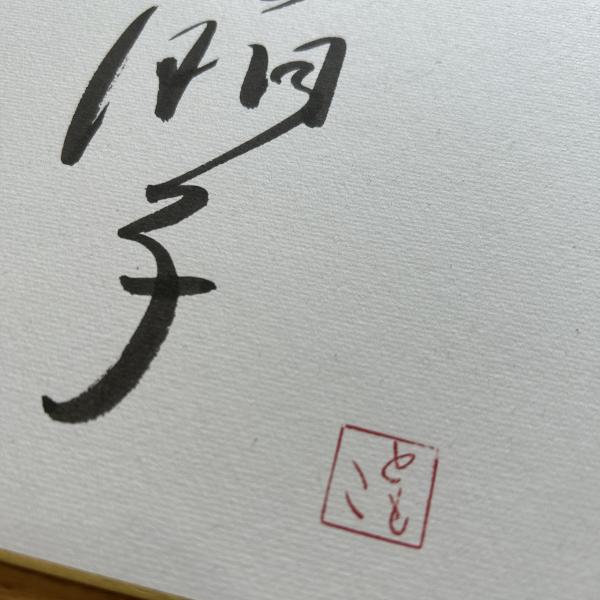 子
とも
こ